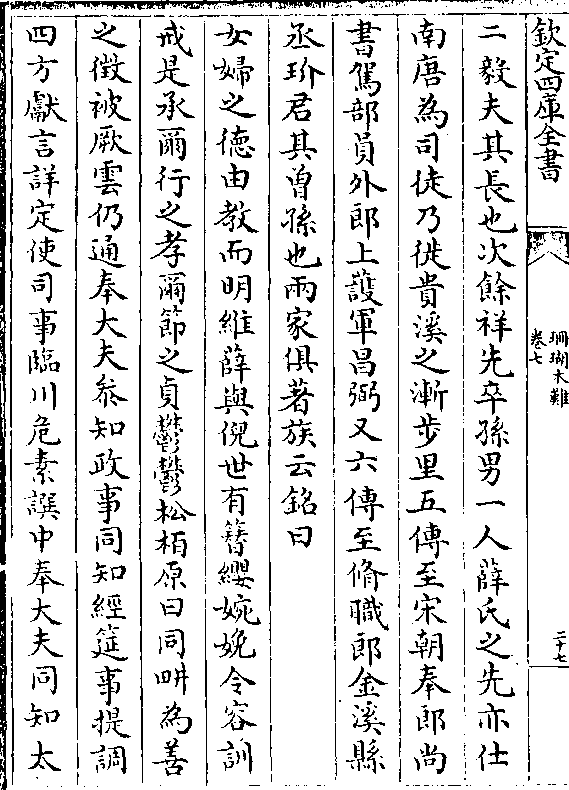 欽定四庫全書
珊瑚木難
卷七
二十七
二毅夫其長也次餘祥先卒孫男一人薛氏之先亦仕
南唐為司徒乃徙貴溪之漸步里五傳至宋朝奉郎尚
書駕部員外郎上護軍昌弼又六傳至脩職郎金溪縣
丞玠君其曾孫也兩家俱著族云銘曰
女婦之德由教而明維薛與倪世有簪纓婉娩令容訓
戒是承爾行之孝爾節之貞鬱鬱松栢原曰同畊為善
之徴被厥雲仍通奉大夫叅知政事同知經筵事提調
四方獻言詳定使司事臨川危素譔中奉大夫同知太